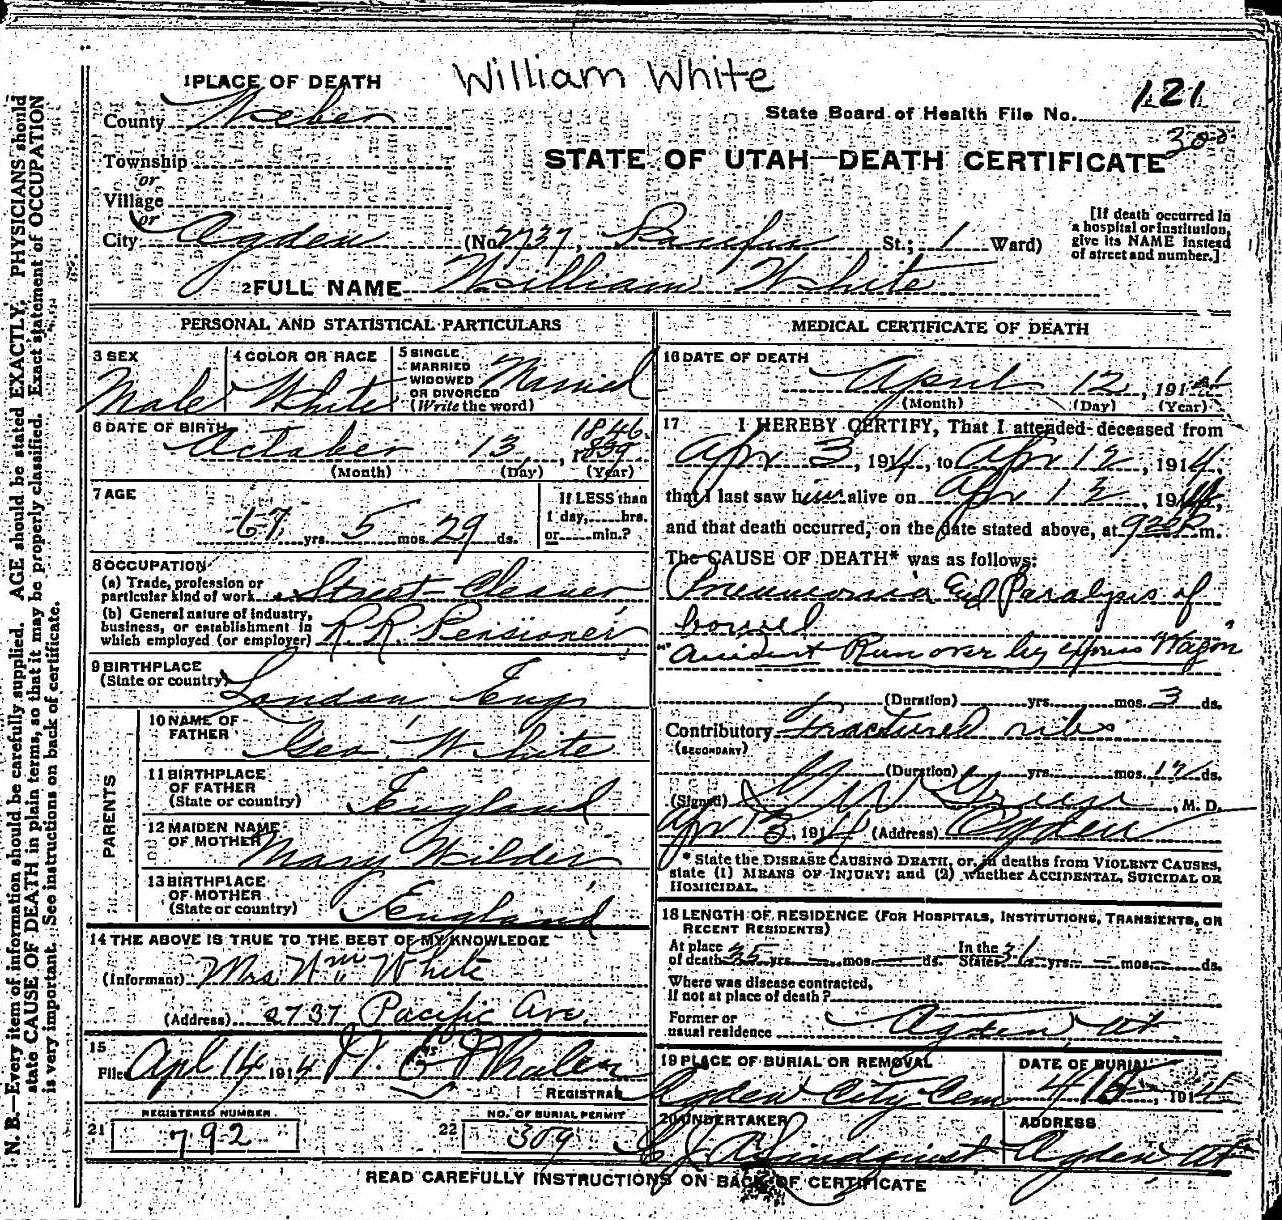 William White
1 PLACE OF DEATH
County Weber
State Board of Health File No. 121
300
Township
or
Village
or
City Ogden (No. 2737, Pacific St.; 1 Ward)
STATE OF UTAH—DEATH CERTIFICATE
[If death occurred in
a hospital or institution,
give its NAME instead
of street and number.]
2 FULL NAME William White
PERSONAL AND STATISTICAL PARTICULARS
3 SEX
Male
4 COLOR OR RACE
White
5 SINGLE
MARRIED
WIDOWED
OR DIVORCED
(Write the word)
Married
6 DATE OF BIRTH
1846
October 13, 1839
(Month) (Day) (Year)
7 AGE
67 yrs. 5 mos. 29 ds.
If LESS than
1 day, hrs.
or min.?
8 OCCUPATION
(a) Trade, profession or
particular kind of work Street Cleaner
(b) General nature of industry,
business, or establishment in
which employed (or employer) R R. Pensioner
9 BIRTHPLACE
(State or country) London Eng
PARENTS
10 NAME OF
FATHER Geo. White
11 BIRTHPLACE
OF FATHER
(State or country) England
12 MAIDEN NAME
OF MOTHER Mary Wilder
13 BIRTHPLACE
OF MOTHER
(State or country) England
14 THE ABOVE IS TRUE TO THE BEST OF MY KNOWLEDGE
(Informant) Mrs Wm White
(Address) 2737 Pacific Ave.
15
Filed Apl 14, 1914 Whalen
REGISTRAR
21 REGISTERED NUMBER
792
22 NO. OF BURIAL PERMIT
309
MEDICAL CERTIFICATE OF DEATH
16 DATE OF DEATH
April 12, 1914
(Month) (Day) (Year)
17 I HEREBY CERTIFY, That I attended deceased from
Apr 3, 1914, to Apr 12, 1914,
that I last saw him alive on Apr 12, 1914,
and that death occurred, on the date stated above, at 920 P m.
The CAUSE OF DEATH* was as follows:
Pneumonia and Paralysis of
bowel
"Accident Run over by Express Wagon
(Duration) yrs. mos. 3 ds.
Contributory Fractured ribs
(SECONDARY)
(Duration) yrs. mos. 12 ds.
(Signed) G W Green, M. D.
Apr 13, 1914 (Address) Ogden
* State the DISEASE CAUSING DEATH, or, in deaths from VIOLENT CAUSES,
state (1) MEANS OF INJURY; and (2) whether ACCIDENTAL, SUICIDAL OR
HOMICIDAL.
18 LENGTH OF RESIDENCE (FOR HOSPITALS, INSTITUTIONS, TRANSIENTS, OR
RECENT RESIDENTS)
At place
of death 35 yrs. — mos. — ds.
In the
States 31 yrs. — mos. — ds.
Where was disease contracted,
if not at place of death?
Former or
usual residence Ogden, Ut
19 PLACE OF BURIAL OR REMOVAL
Ogden City Cem
DATE OF BURIAL
4/15, 1914
20 UNDERTAKER
Lindquist
ADDRESS
Ogden Ut
READ CAREFULLY INSTRUCTIONS ON BACK OF CERTIFICATE
N. B.—Every item of information should be carefully supplied. AGE should be stated EXACTLY. PHYSICIANS should
state CAUSE OF DEATH in plain terms, so that it may be properly classified. Exact statement of OCCUPATION
is very important. See instructions on back of certificate.